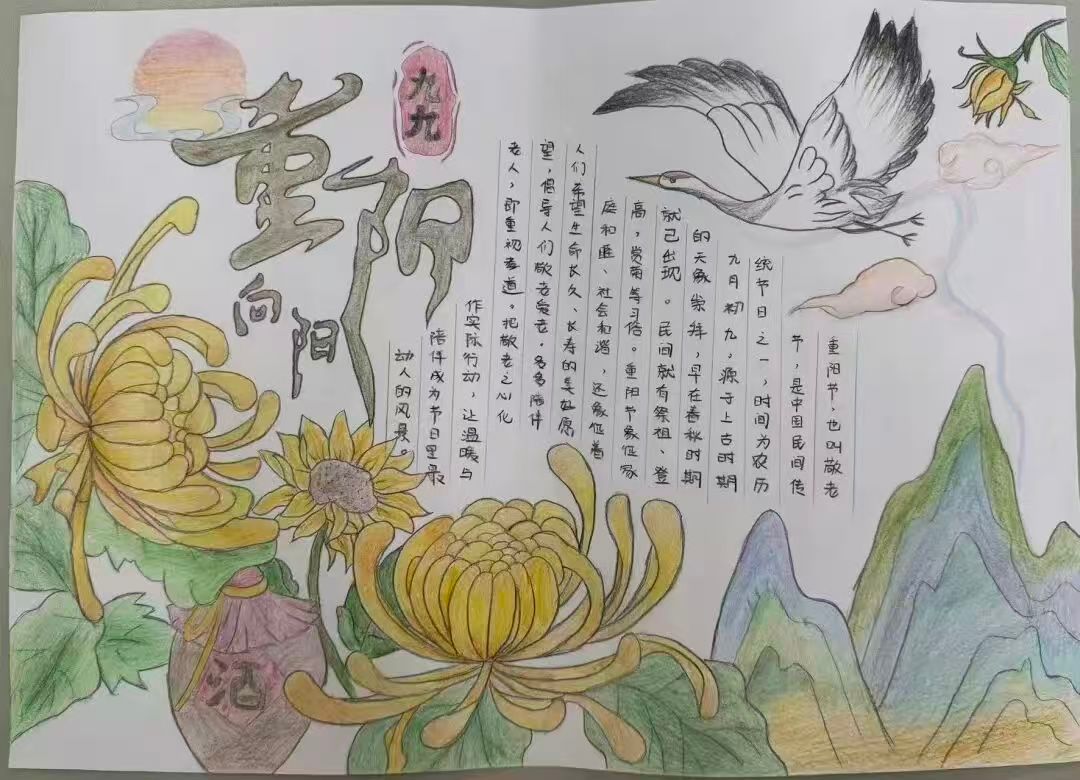 重阳
九九
向阳
重阳节，也叫敬老
节，是中国民间传
统节日之一，时间为农历
九月初九，源于上古时期
的天象崇拜，早在春秋时期
就已出现。民间就有祭祖、登
高，赏菊等习俗。重阳节象征家
庭和睦、社会和谐，还象征着
人们希望生命长久、长寿的美好愿
望，倡导人们敬老爱老，多多陪伴
老人，即重视孝道。把敬老之心化
作实际行动，让温暖与
陪伴成为节日里最
动人的风景。
酒